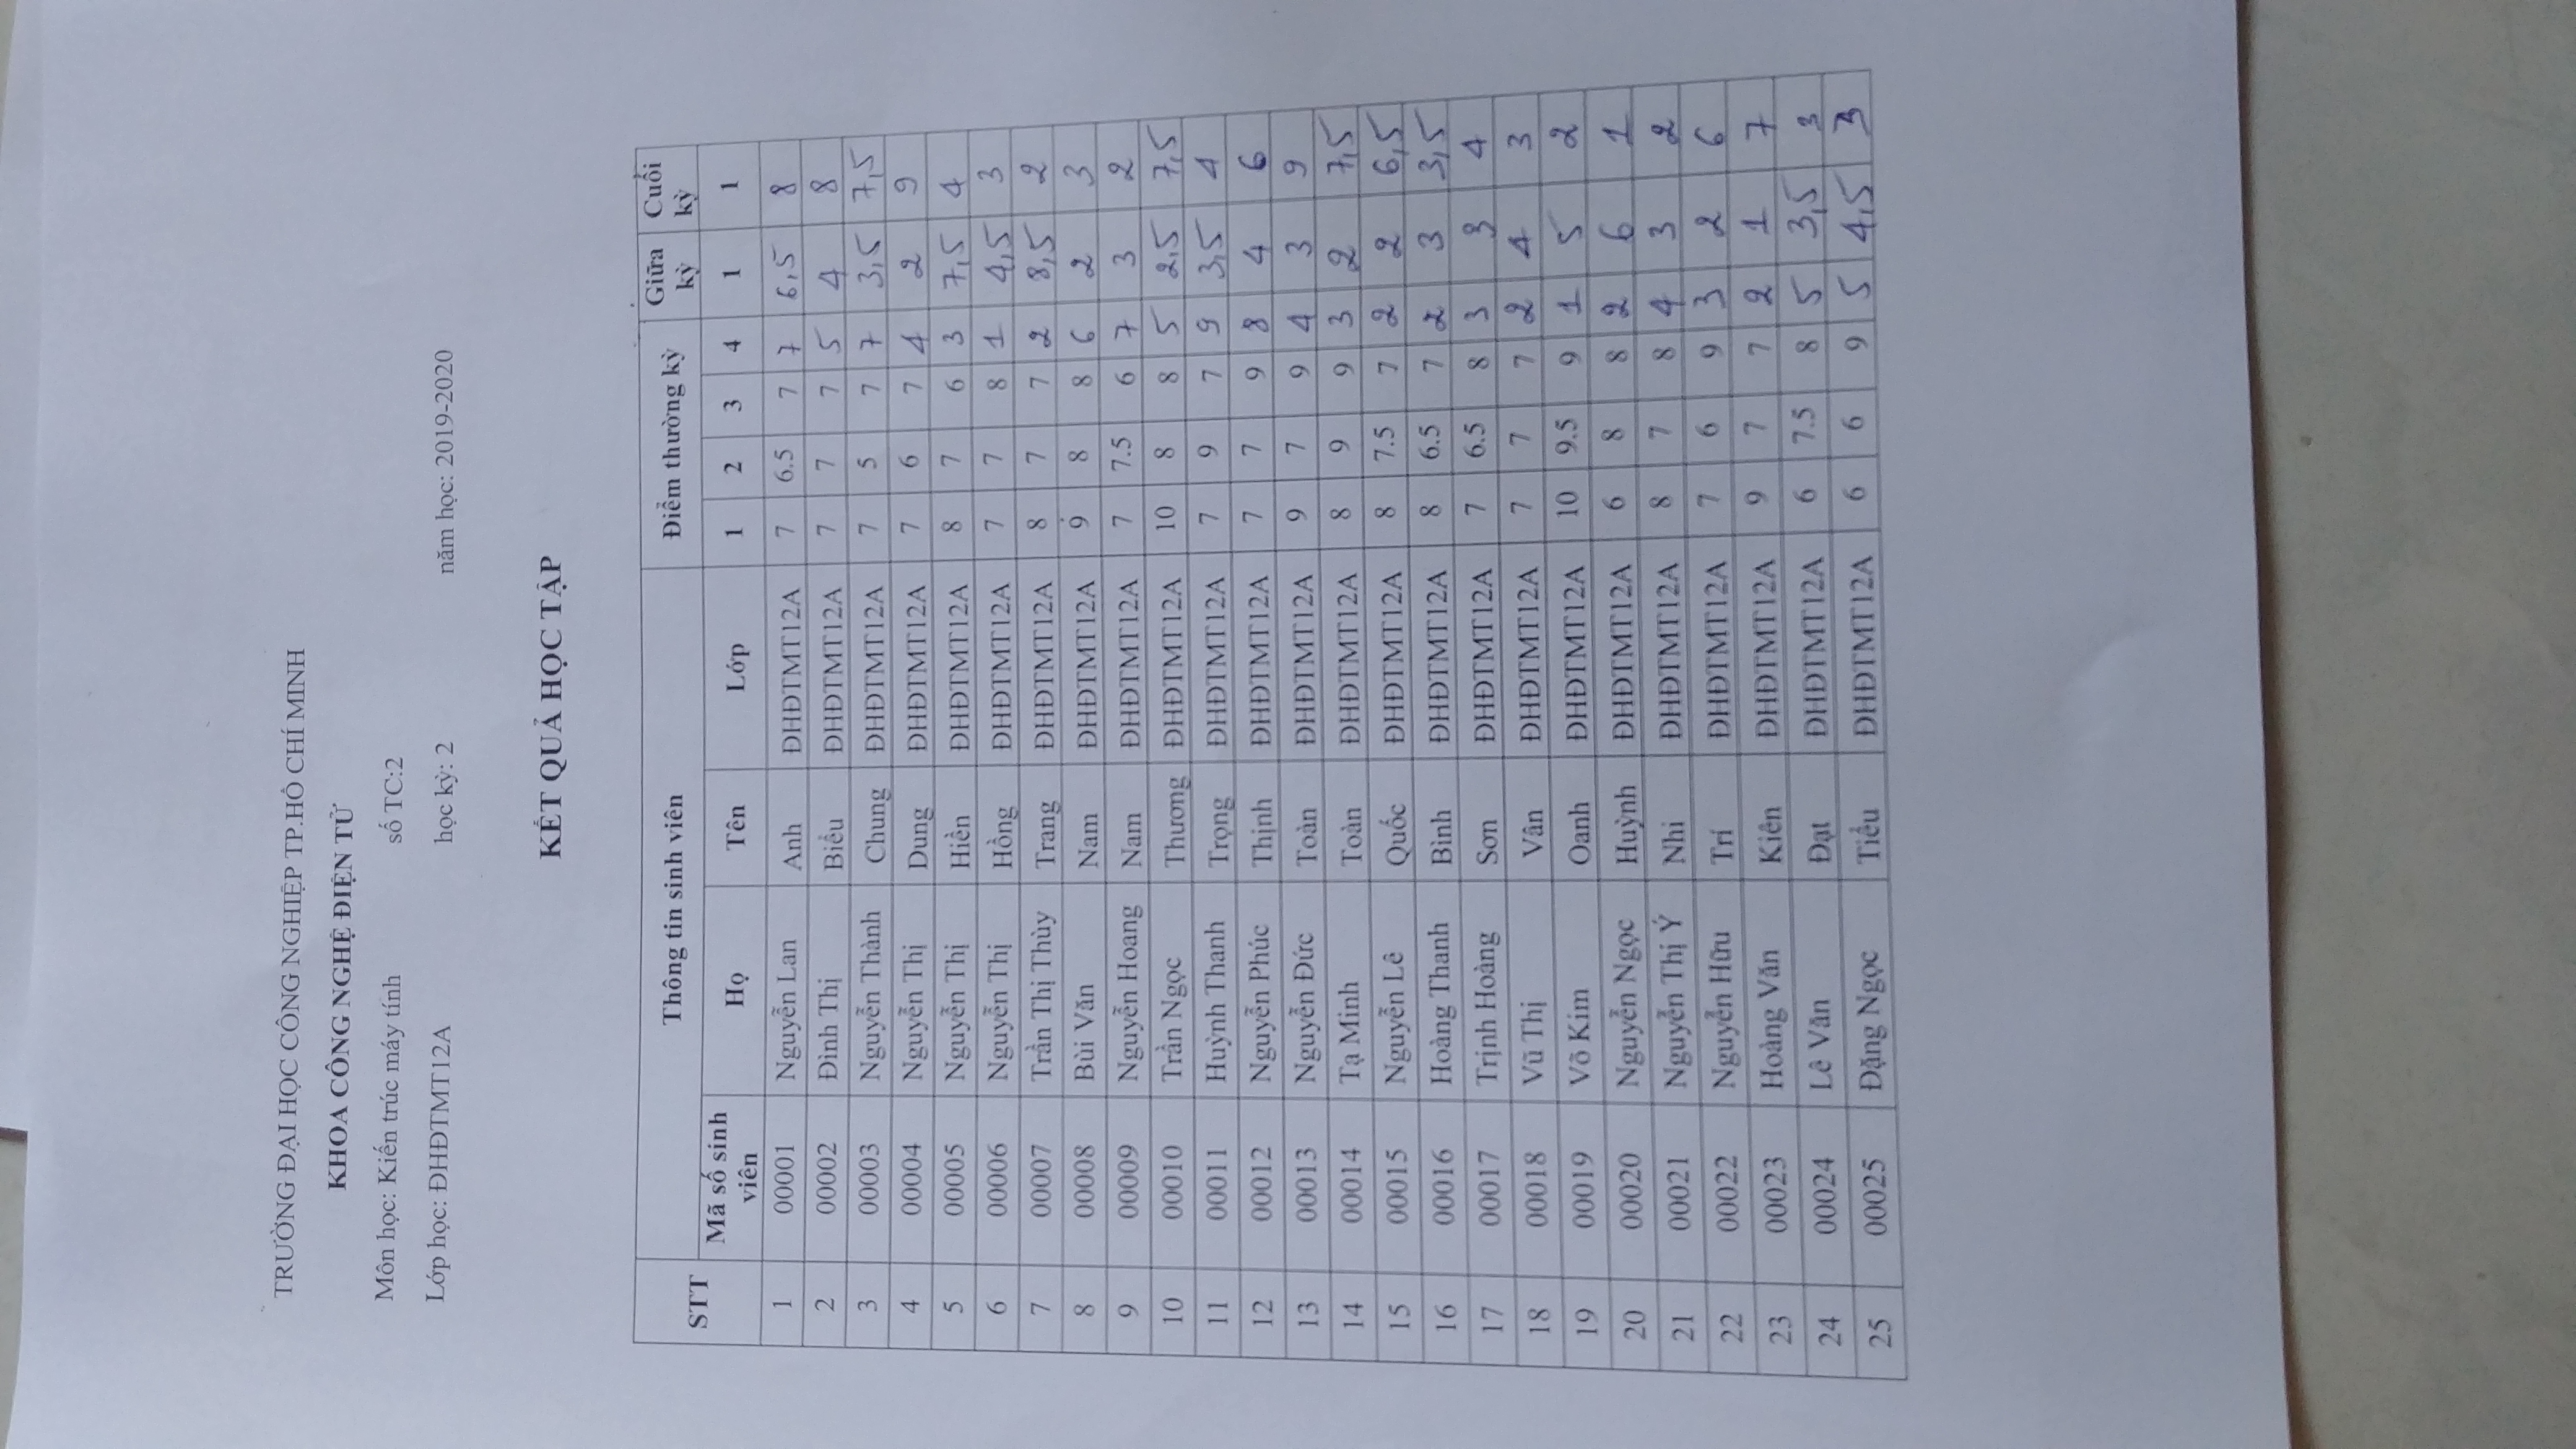 TRƯỜNG ĐẠI HỌC CÔNG NGHIỆP TP.HỒ CHÍ MINH
KHOA CÔNG NGHỆ ĐIỆN TỬ
Môn học: Kiến trúc máy tính số TC:2
Lớp học: ĐHĐTMT12A học kỳ: 2 năm học: 2019-2020
KẾT QUẢ HỌC TẬP
STT Thông tin sinh viên Điểm thường kỳ Giữa kỳ Cuối kỳ
Mã số sinh viên Họ Tên Lớp 1 2 3 4 1 1
1 00001 Nguyễn Lan Anh ĐHĐTMT12A 7 6.5 7 7 6,5 8
2 00002 Đình Thị Biểu ĐHĐTMT12A 7 7 7 5 4 8
3 00003 Nguyễn Thành Chung ĐHĐTMT12A 7 5 7 7 3,5 7,5
4 00004 Nguyễn Thị Dung ĐHĐTMT12A 7 6 7 4 2 9
5 00005 Nguyễn Thị Hiền ĐHĐTMT12A 8 7 6 3 7,5 4
6 00006 Nguyễn Thị Hồng ĐHĐTMT12A 7 7 8 1 4,5 3
7 00007 Trần Thị Thùy Trang ĐHĐTMT12A 8 7 7 2 8,5 2
8 00008 Bùi Văn Nam ĐHĐTMT12A 9 8 8 6 2 3
9 00009 Nguyễn Hoang Nam ĐHĐTMT12A 7 7.5 6 7 3 2
10 00010 Trần Ngọc Thương ĐHĐTMT12A 10 8 8 5 2,5 7,5
11 00011 Huỳnh Thanh Trọng ĐHĐTMT12A 7 9 7 9 3,5 4
12 00012 Nguyễn Phúc Thịnh ĐHĐTMT12A 7 7 9 8 4 6
13 00013 Nguyễn Đức Toàn ĐHĐTMT12A 9 7 9 4 3 9
14 00014 Tạ Minh Toàn ĐHĐTMT12A 8 9 9 3 2 7,5
15 00015 Nguyễn Lê Quốc ĐHĐTMT12A 8 7.5 7 2 2 6,5
16 00016 Hoàng Thanh Bình ĐHĐTMT12A 8 6.5 7 2 3 3,5
17 00017 Trịnh Hoàng Sơn ĐHĐTMT12A 7 6.5 8 3 3 4
18 00018 Vũ Thị Vân ĐHĐTMT12A 7 7 7 2 4 3
19 00019 Võ Kim Oanh ĐHĐTMT12A 10 9.5 9 1 5 2
20 00020 Nguyễn Ngọc Huỳnh ĐHĐTMT12A 6 8 8 2 6 1
21 00021 Nguyễn Thị Ý Nhi ĐHĐTMT12A 8 7 8 4 3 2
22 00022 Nguyễn Hữu Trí ĐHĐTMT12A 7 6 9 3 2 6
23 00023 Hoàng Văn Kiên ĐHĐTMT12A 9 7 7 2 1 7
24 00024 Lê Văn Đạt ĐHĐTMT12A 6 7.5 8 5 3,5 3
25 00025 Đặng Ngọc Tiểu ĐHĐTMT12A 6 6 9 5 4,5 3